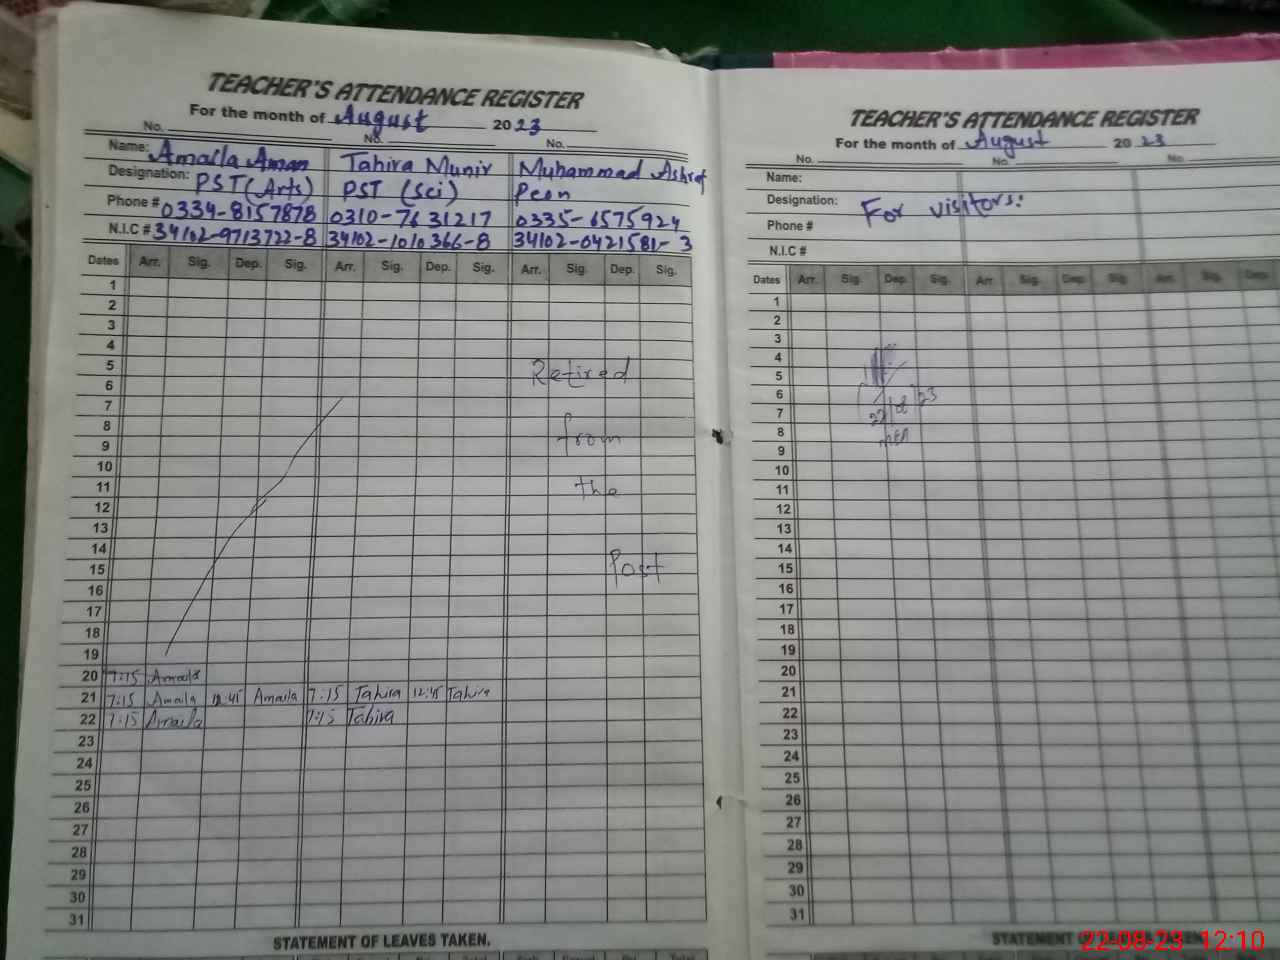 TEACHER'S ATTENDANCE REGISTER
For the month of August 2023
No. No. No.
Name: Amaila Aman Tahira Munir Muhammad Ashraf
Designation: PST(Arts) PST (Sci) Peon
Phone # 0334-8157878 0310-7631217 0335-6575924
N.I.C # 34102-9713722-8 34102-1010366-8 34102-0421581-3
Dates Arr. Sig. Dep. Sig. Arr. Sig. Dep. Sig. Arr. Sig. Dep. Sig.
1
2
3
4
5 Retired
6
7
8
9 from
10
11 the
12
13
14
15 Post
16
17
18
19
20 7:15 Amaila
21 7:15 Amaila 12:45 Amaila 7:15 Tahira 12:45 Tahira
22 7:15 Amaila 7:15 Tahira
23
24
25
26
27
28
29
30
31
STATEMENT OF LEAVES TAKEN.
TEACHER'S ATTENDANCE REGISTER
For the month of August 2023
No. No. No.
Name:
Designation: For visitors:
Phone #
N.I.C #
Dates Arr. Sig. Dep. Sig. Arr. Sig. Dep. Sig. Arr. Sig. Dep.
1
2
3
4
5
6
7 22/08/23
8 MEA
9
10
11
12
13
14
15
16
17
18
19
20
21
22
23
24
25
26
27
28
29
30
31
STATEMENT OF LEAVES TAKEN
22-08-23 12:10